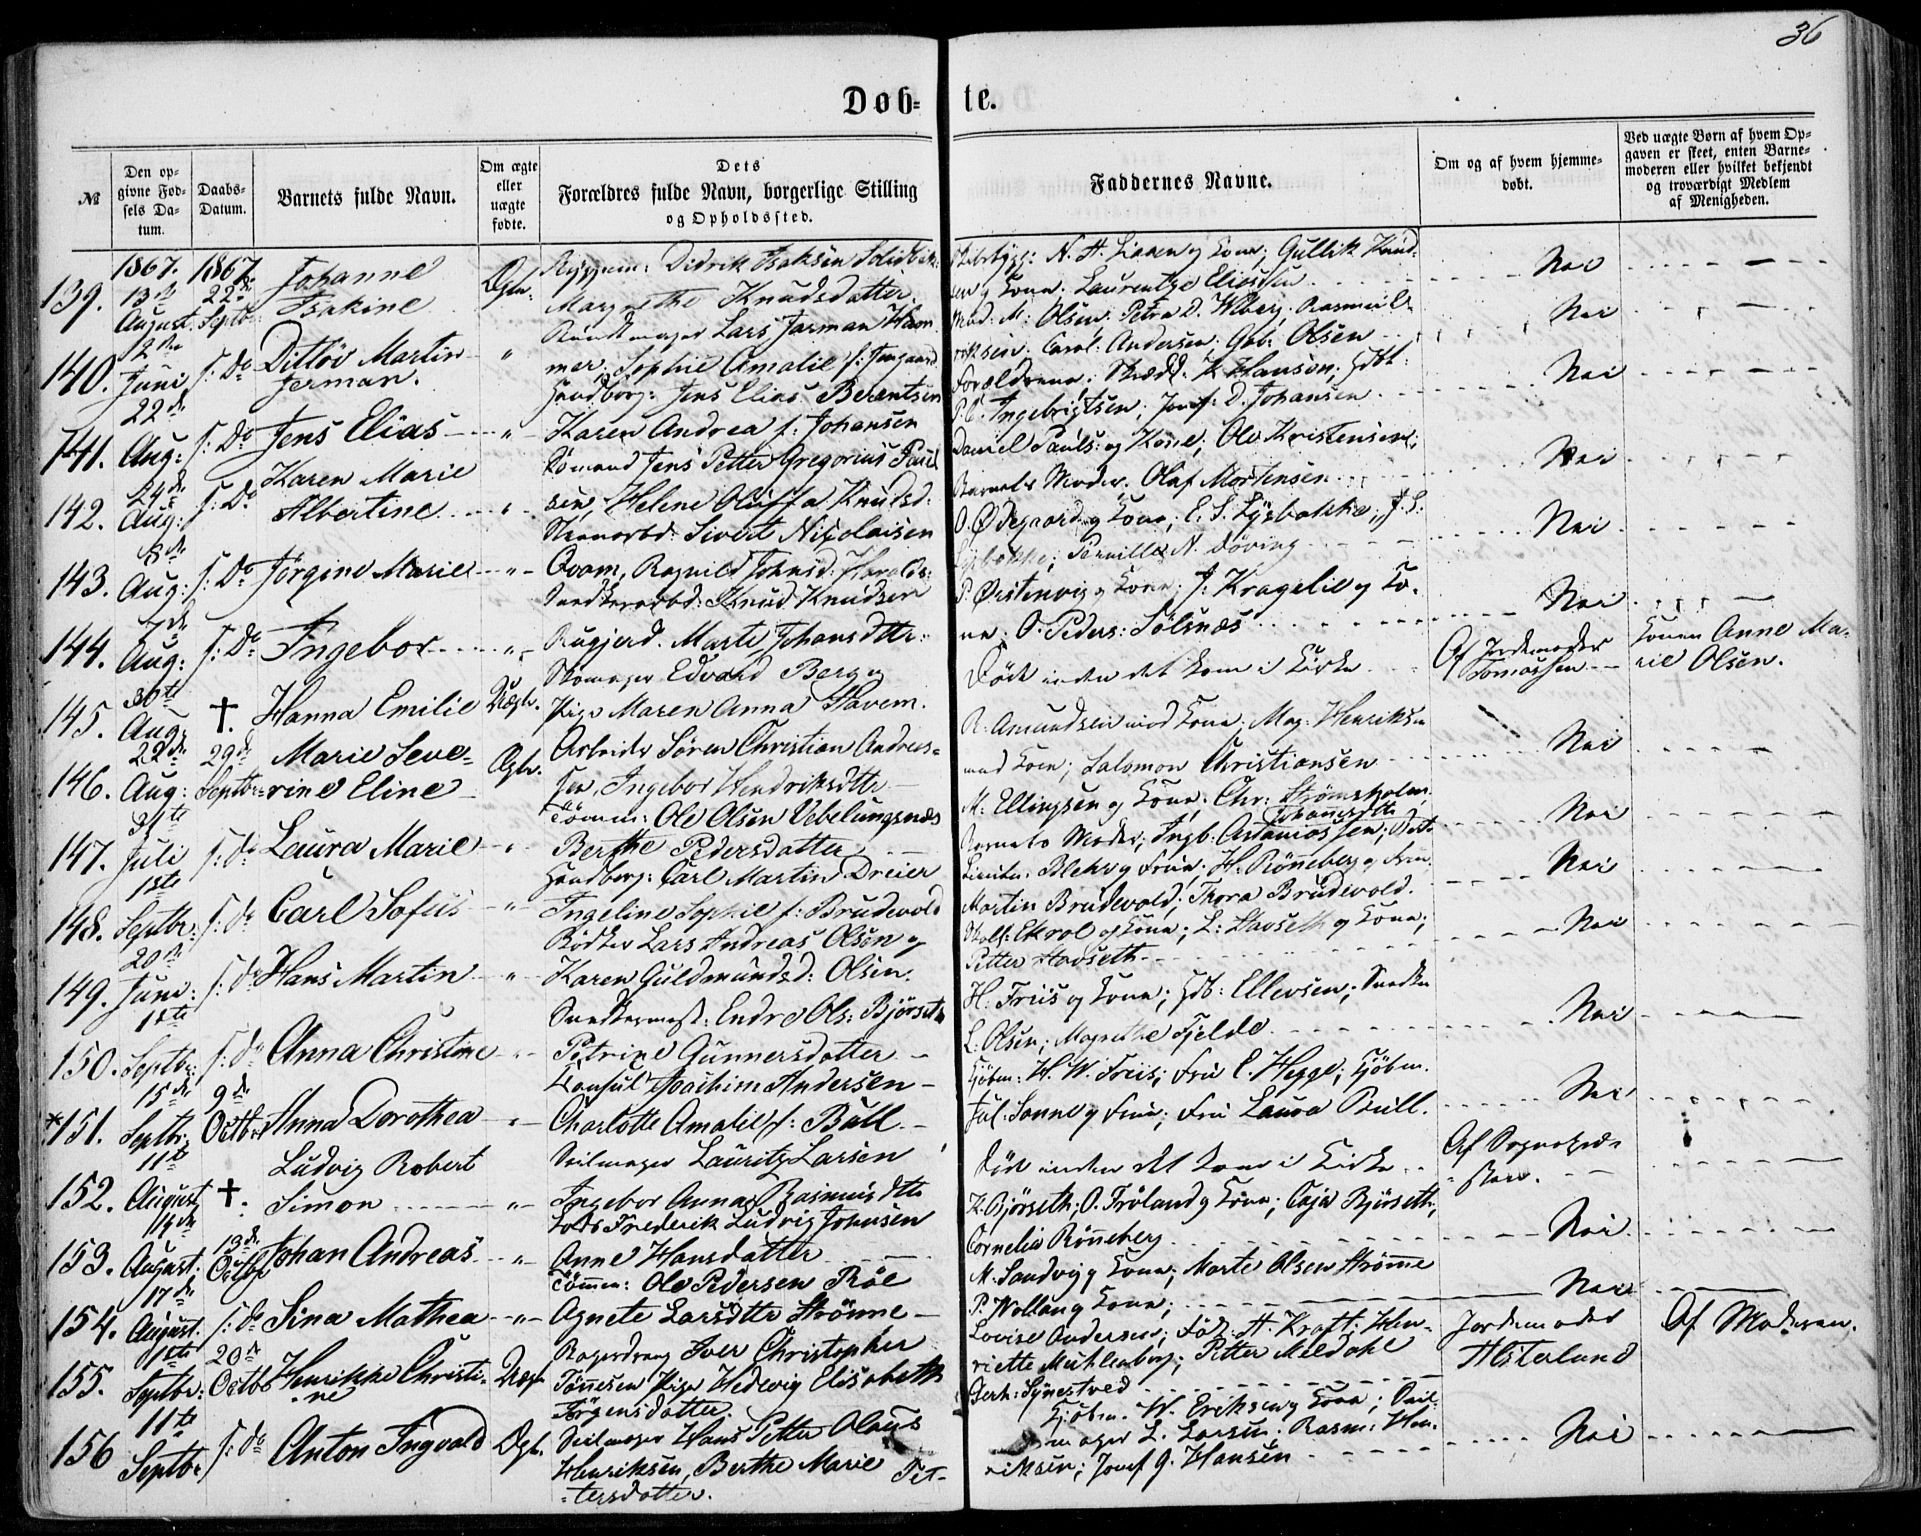 36
Døb- te.
№
Den opgivne Fødsels Datum.
Daabs-Datum.
Barnets fulde Navn.
Om ægte eller uægte fødte.
Dets Forældres fulde Navn, borgerlige Stilling og Opholdssted.
Faddernes Navne.
Om og af hvem hjemmedøbt.
Ved uægte Børn af hvem Opgaven er skeet, enten Barnemoderen eller hvilket bekjendt og troværdigt Medlem af Menigheden.
1867. 1867.
139. 13de August 22de Septbr Johanne Isakine Ægte. Didrik Isaksen
Margrethe Knudsdatter. og Kone; Gullik Knud-
sen og Kone. Laurentze Eliassen Nei
140. 12te Juni s: Do Ditløv Martin Jerman. " Lars Jarman Ham-
mer, Sophie Amalie f: M: Olsen. Petra D. Wiberg. Rasm:
riksen. Carol: Andersen. Gab: Olsen Nei
141. 22de Aug: s: Do Jens Elias " Handborg: Jens Elias Berentsen
Karen Andrea f: Johansen Forældrene; K. Hansen;
Ingebrigtsen; D. Johansen Nei
142. 24de Aug: s: Do Karen Marie Albertine " Sømand Jens Petter Gregorius Paul-
sen, Helene Oluffa Knudsd: Daniel Pauls: og Kone; Ole Kristensen;
Barnets Moder. Olaf Mortensen Nei
143. 8de Aug: s: Do Jørgine Marie " Sivert Nicolaisen
Qvam, Ragnild Johnsd: O. Ødegaard og Kone; E. S. Lysbakke; J. S.
Lysbakke; Pernille N. Døving Nei
144. 7de Aug: s: Do Ingebor " Knud Knudsen
Marte Johansdttr. P. Ørstenvig og Kone; J: Kragelie og Ko-
ne; O. Peders: Sølsnæs Nei
145. 30te Aug: †. Hanna Emilie Uægte. Skomager Edvard Berg og
Pige Maren Anna Havem. Død inden det kom i Kirke Af Jordemoder Tomassen Konen Anne Ma-
rie Olsen.
146. 22de Aug: 29de Septbr: Marie Seve-
rine Eline Ægte. Arbeider Søren Christian Andreas-
sen, Ingebor Hendriksdttr A. Amundsen med Kone. Mag: Henriksen
med Kone; Salomon Christiansen Nei
147. 31te Juli s: do Laura Marie " Tømm: Ole Olsen Veblungsnæs
Berthe Pedersdatter M: Ellingsen og Kone; Chr: Strømsholm;
Barnets Moder; Ingb. Johannesdttr Nei
148. 1ste Septbr: s: do Carl Sofus " Handborg: Carl Martin Dreier
Ingeline Sophie f: Brudevold Blehr og Frue; H. Rønneberg og Frue
Martin Brudevold; Thora Brudevold. Nei
149. 20de Juni: s: do Hans Martin " Bødker Lars Andreas Olsen og
Karen Guldmundsd: Olsen. Ekrol og Kone; L: Havseth og Kone;
Petter Havseth Nei
150. 1ste Septbr: s: do Anna Christine " Snedkermst: Endre Ols: Bjørseth
Petrine Gunnersdatter H. Friis og Kone; Hdb: Ellevsen; Snedker
L: Olsen; Magrethe Fjelde Nei
*151. 15de Septbr: 9de Octbr Anna Dorothea " Konsul Joachim Andersen
Charlotte Amalie f: Bull. Kjøbm: H. W. Friis; Fru E. Hegge; Kjøbm.
Jul. Sonne og Frue; Fru Laura Bull. Nei
152. 11te August †. Ludvig Robert Simon " Seilmager Lauritz Larsen
Ingebor Anna Rasmusdttr Død inden det kom i Kirke Af Sognepræ-
sten.
153. 14de August. 13de Octbr Johan Andreas " Lods Frederik Ludvig Johnsen
Anne Hansdatter K. Bjørseth; O. Frøland og Kone; Caja Bjørseth;
Cornelia Rønneberg Nei
154. 17de August. s: do Sina Mathea " Tømm: Ole Pedersen Røe
Agnete Larsdttr Strømme M. Sandvig og Kone; Marte Olsen Strømme
P. Wollan og Kone; Nei
155. 1ste Septbr: 20de Octbr Henrikke Christi-
ne Uægte Bagerdreng Iver Christopher
Tønnesen Pige Hedevig Elisabeth
Jørgensdatter. Lovise Andersen; H. Kraft; Hen-
riette Muhlenborg; Petter Meldahl
Gerh: Synestved Jordemoder Alsterlund Af Moderen.
156 11te Septbr s: do Anton Ingvald Ægte. Seilmager Hans Petter Olaus
Henriksen, Berthe Marie Pet-
tersdatter. Kjøbm. W. Eriksen og Kone; Seil-
mager L. Larsen; Rasm: Hen-
riksen; Josef G. Hansen Nei